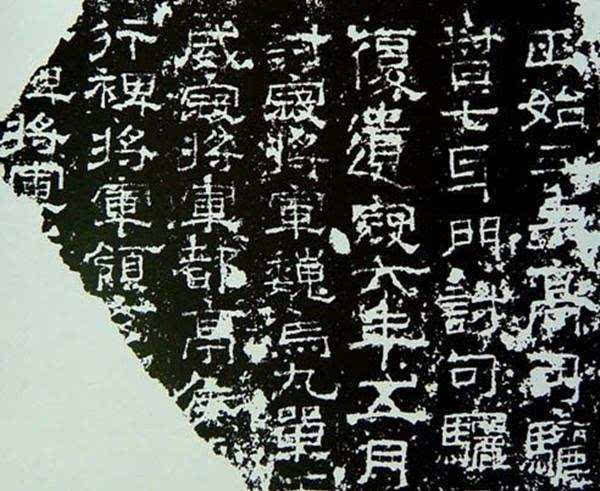 正始三年高句驪
督七牙門討句驪
復遺寇六年五月
討寇將軍魏烏丸單
威寇將軍都亭侯
行裨將軍領
裨將軍